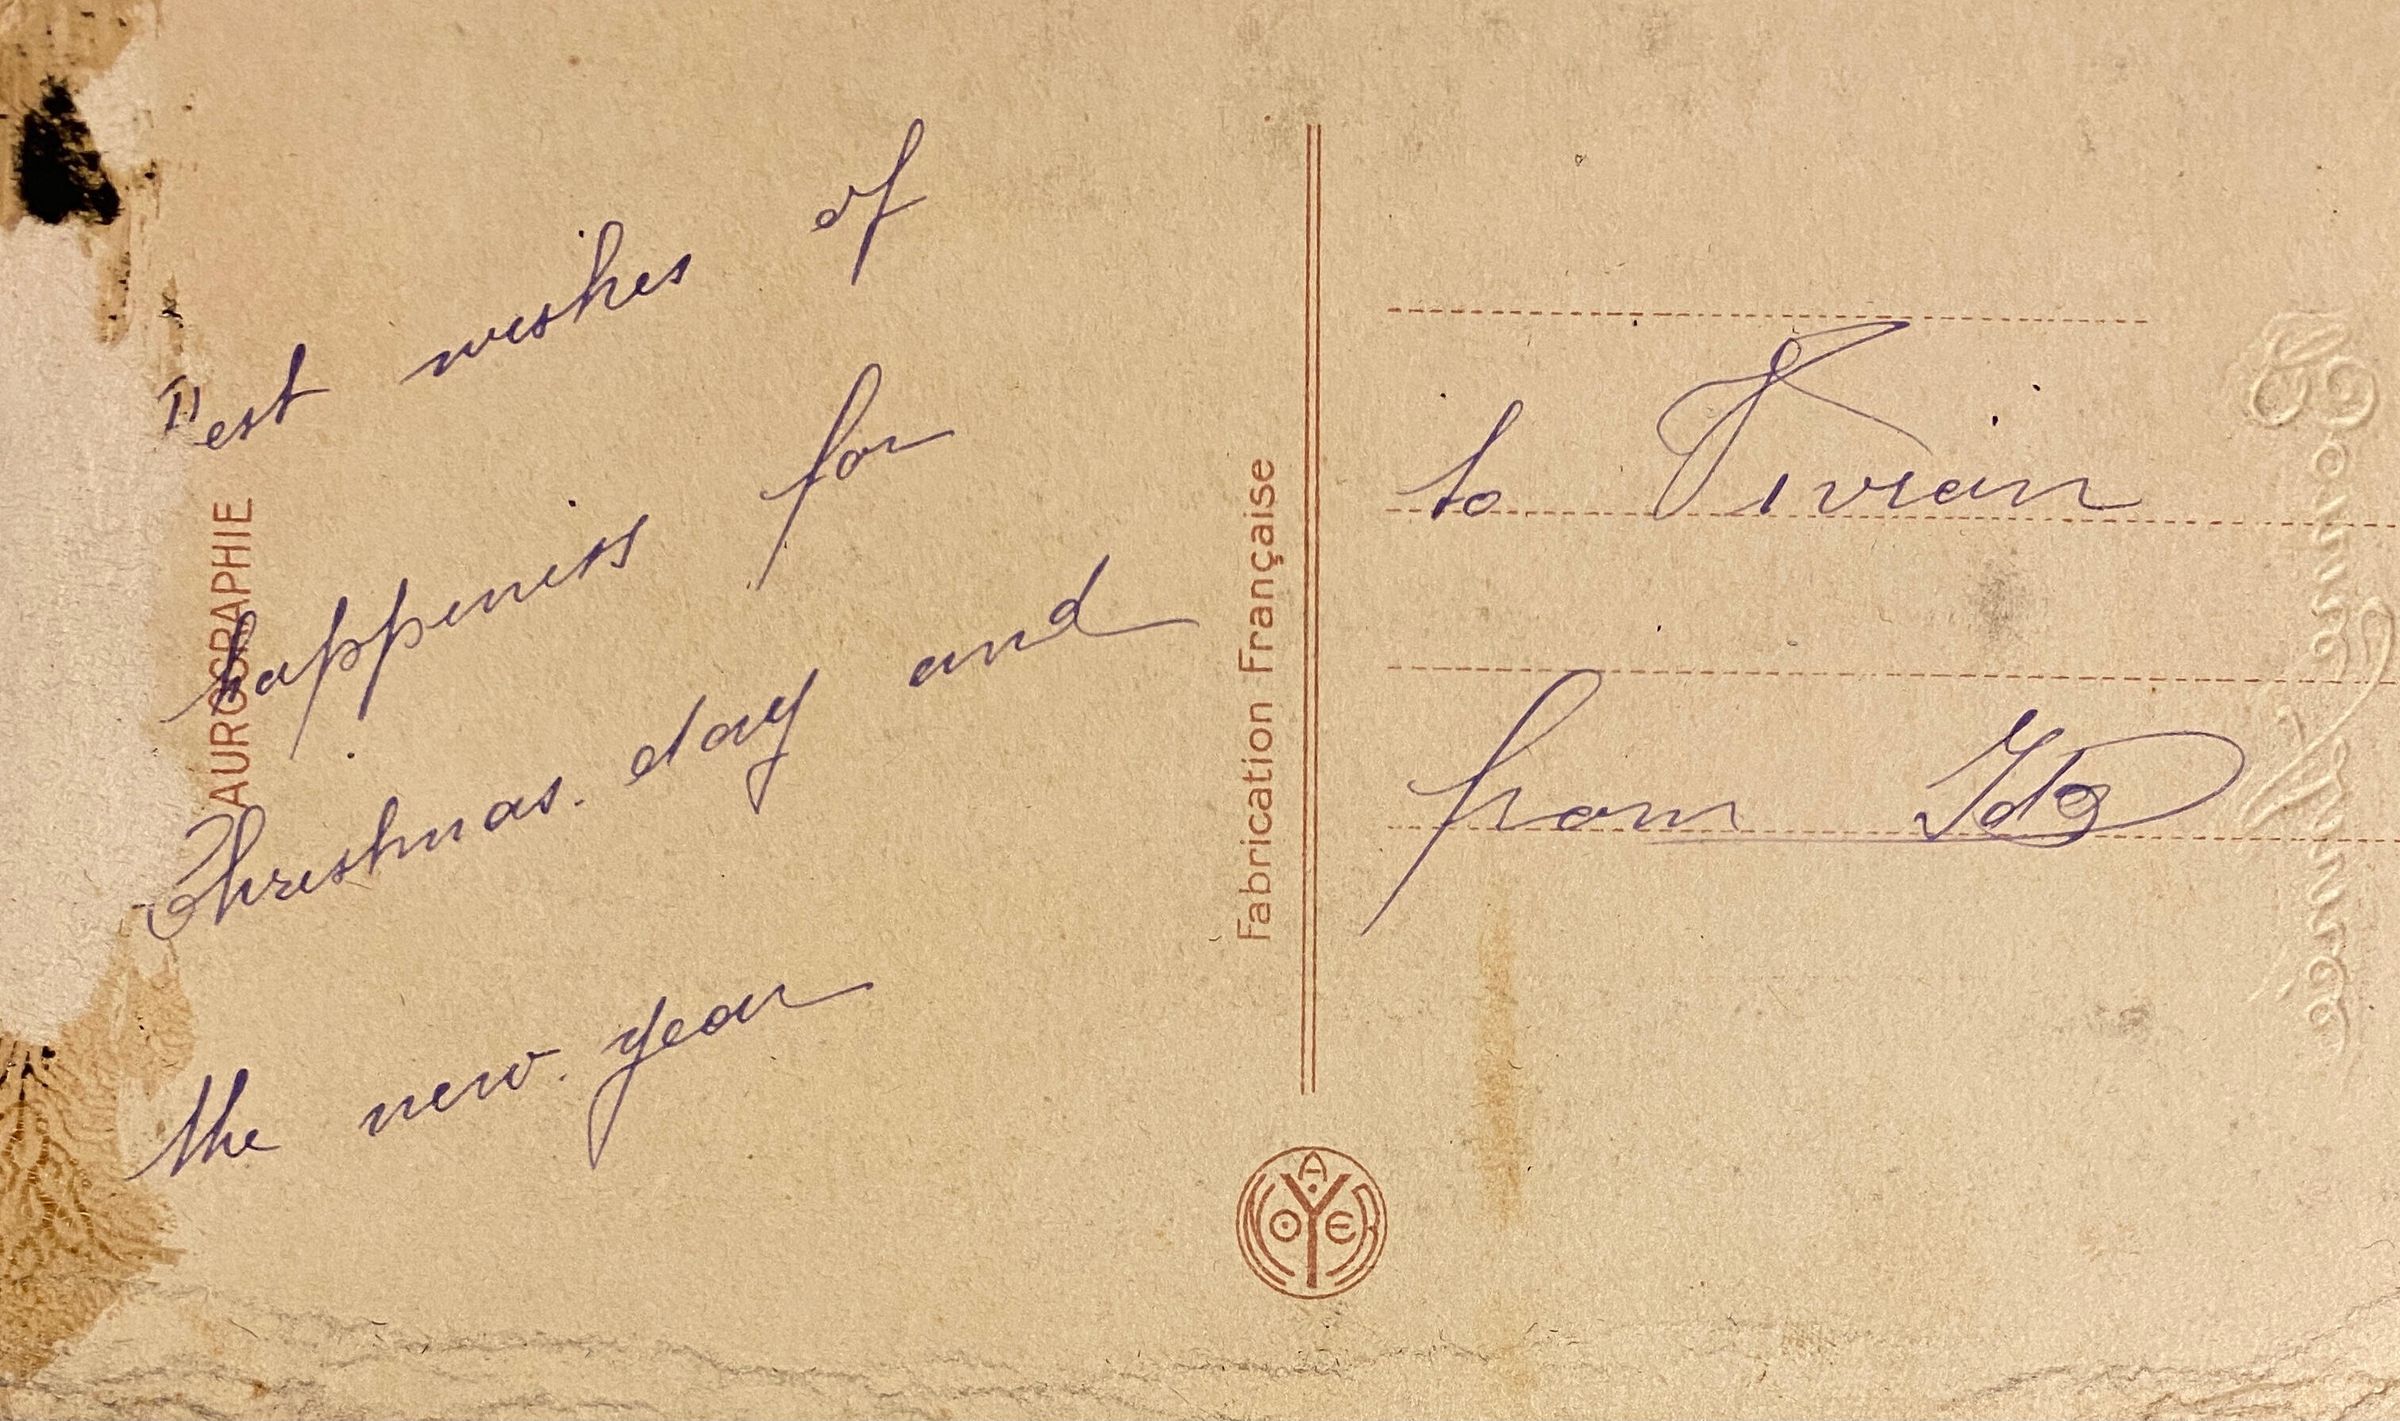 Best wishes of
happeniss for
Christmas. day and
the new. year
AUROGRAPHIE
Fabrication Française
NOYER
A
to Vivian
from Ida
Bonne Année